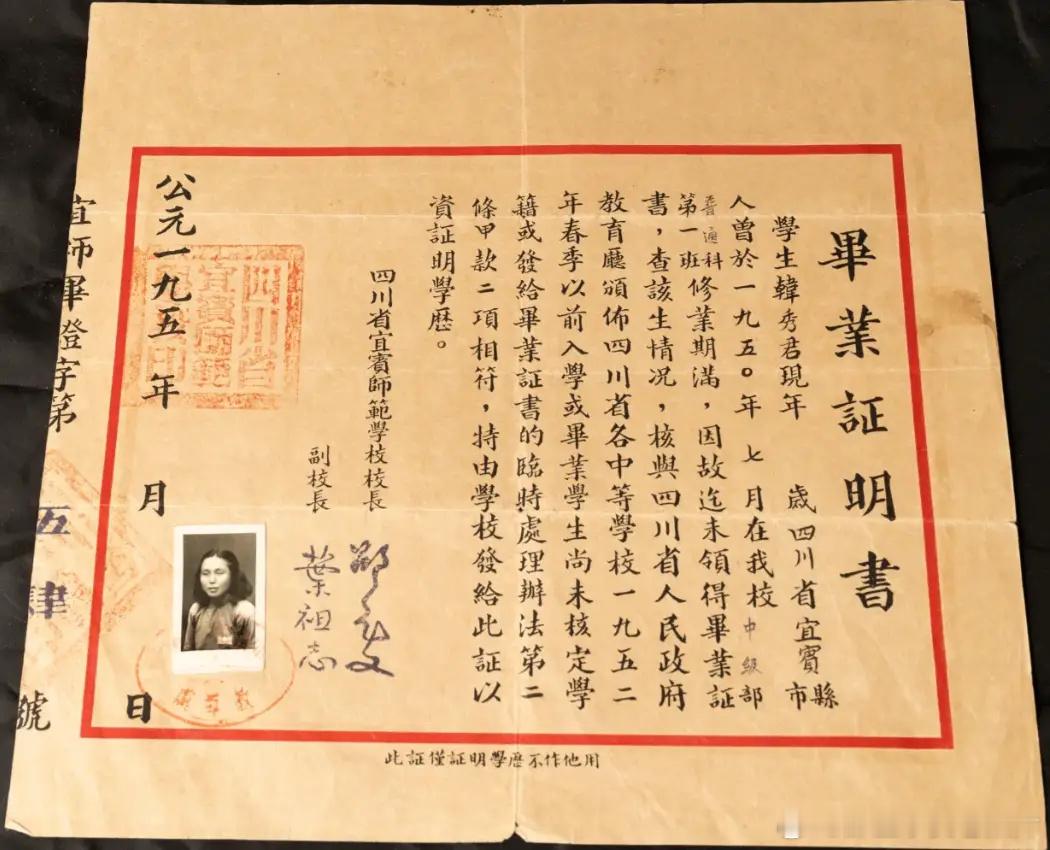 畢業証明書
學生韓秀君現年　歲四川省宜賓縣市
人曾於一九五〇年七月在我校中級部
普通科
第一班修業期滿，因故迄未領得畢業証
書，查該生情况，核與四川省人民政府
教育廳頒佈四川省各中等學校一九五二
年春季以前入學或畢業學生尚未核定學
籍或發給畢業証書的臨時處理辦法第二
條甲款二項相符，特由學校發給此証以
資証明學歷。
四川省宜賓師範學校校長
副校長
葉祖志
公元一九五　年　月　日
宜師畢證字第五肆號
四川省宜賓師範學校印
此証僅証明學歷不作他用